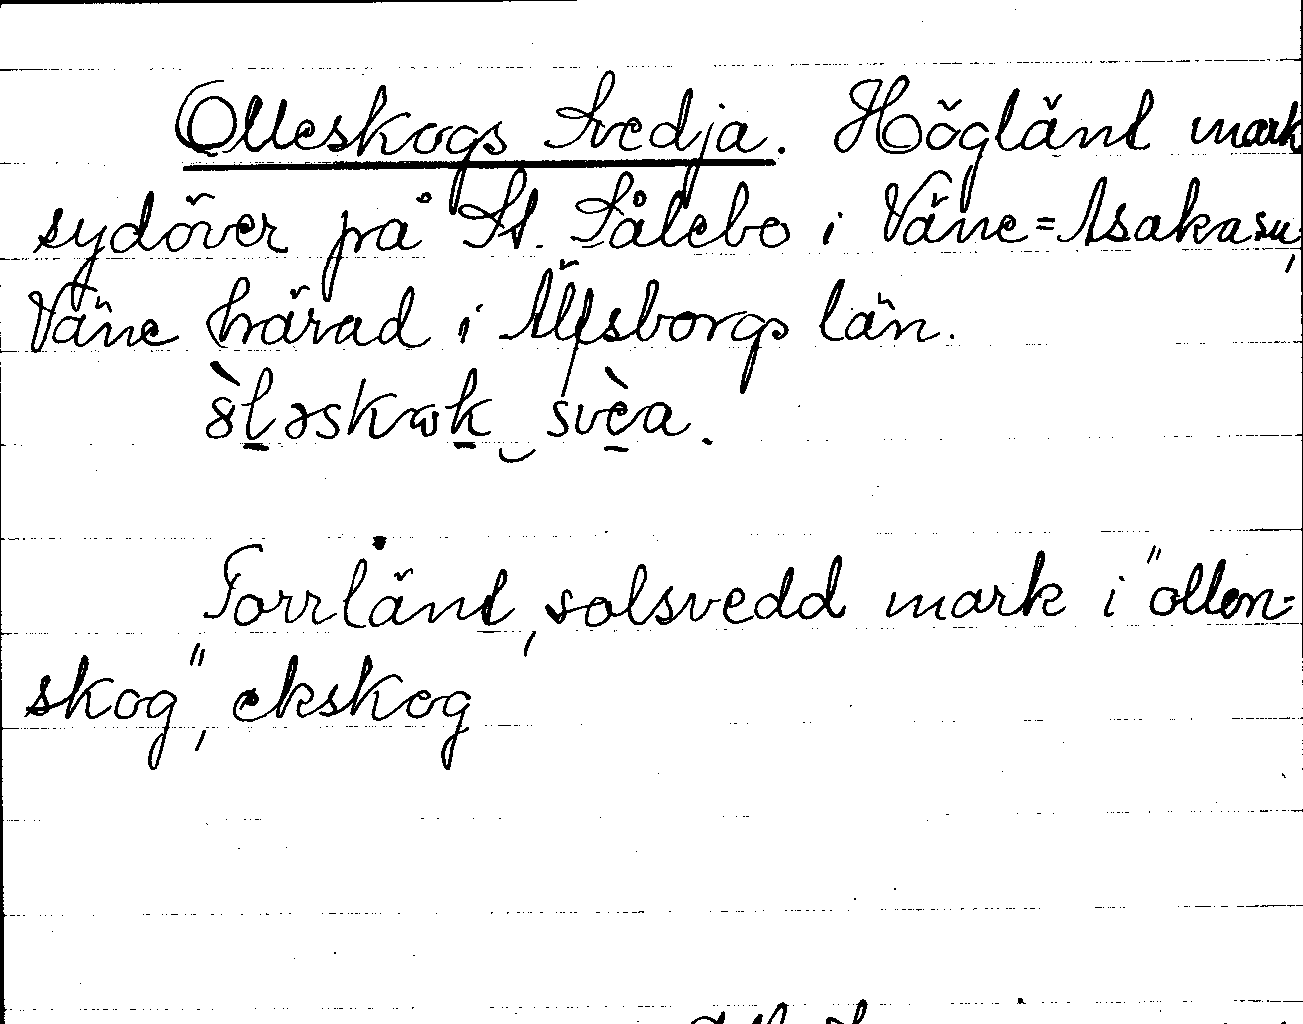 Olleskogs Svedja. Höglänt mark
sydöver på St. Sålebo i Väne=Åsaka sn,
Väne härad i Älfsborgs län.
svèa.
Torrlänt, solsvedd mark i "ollon=
skog", ekskog